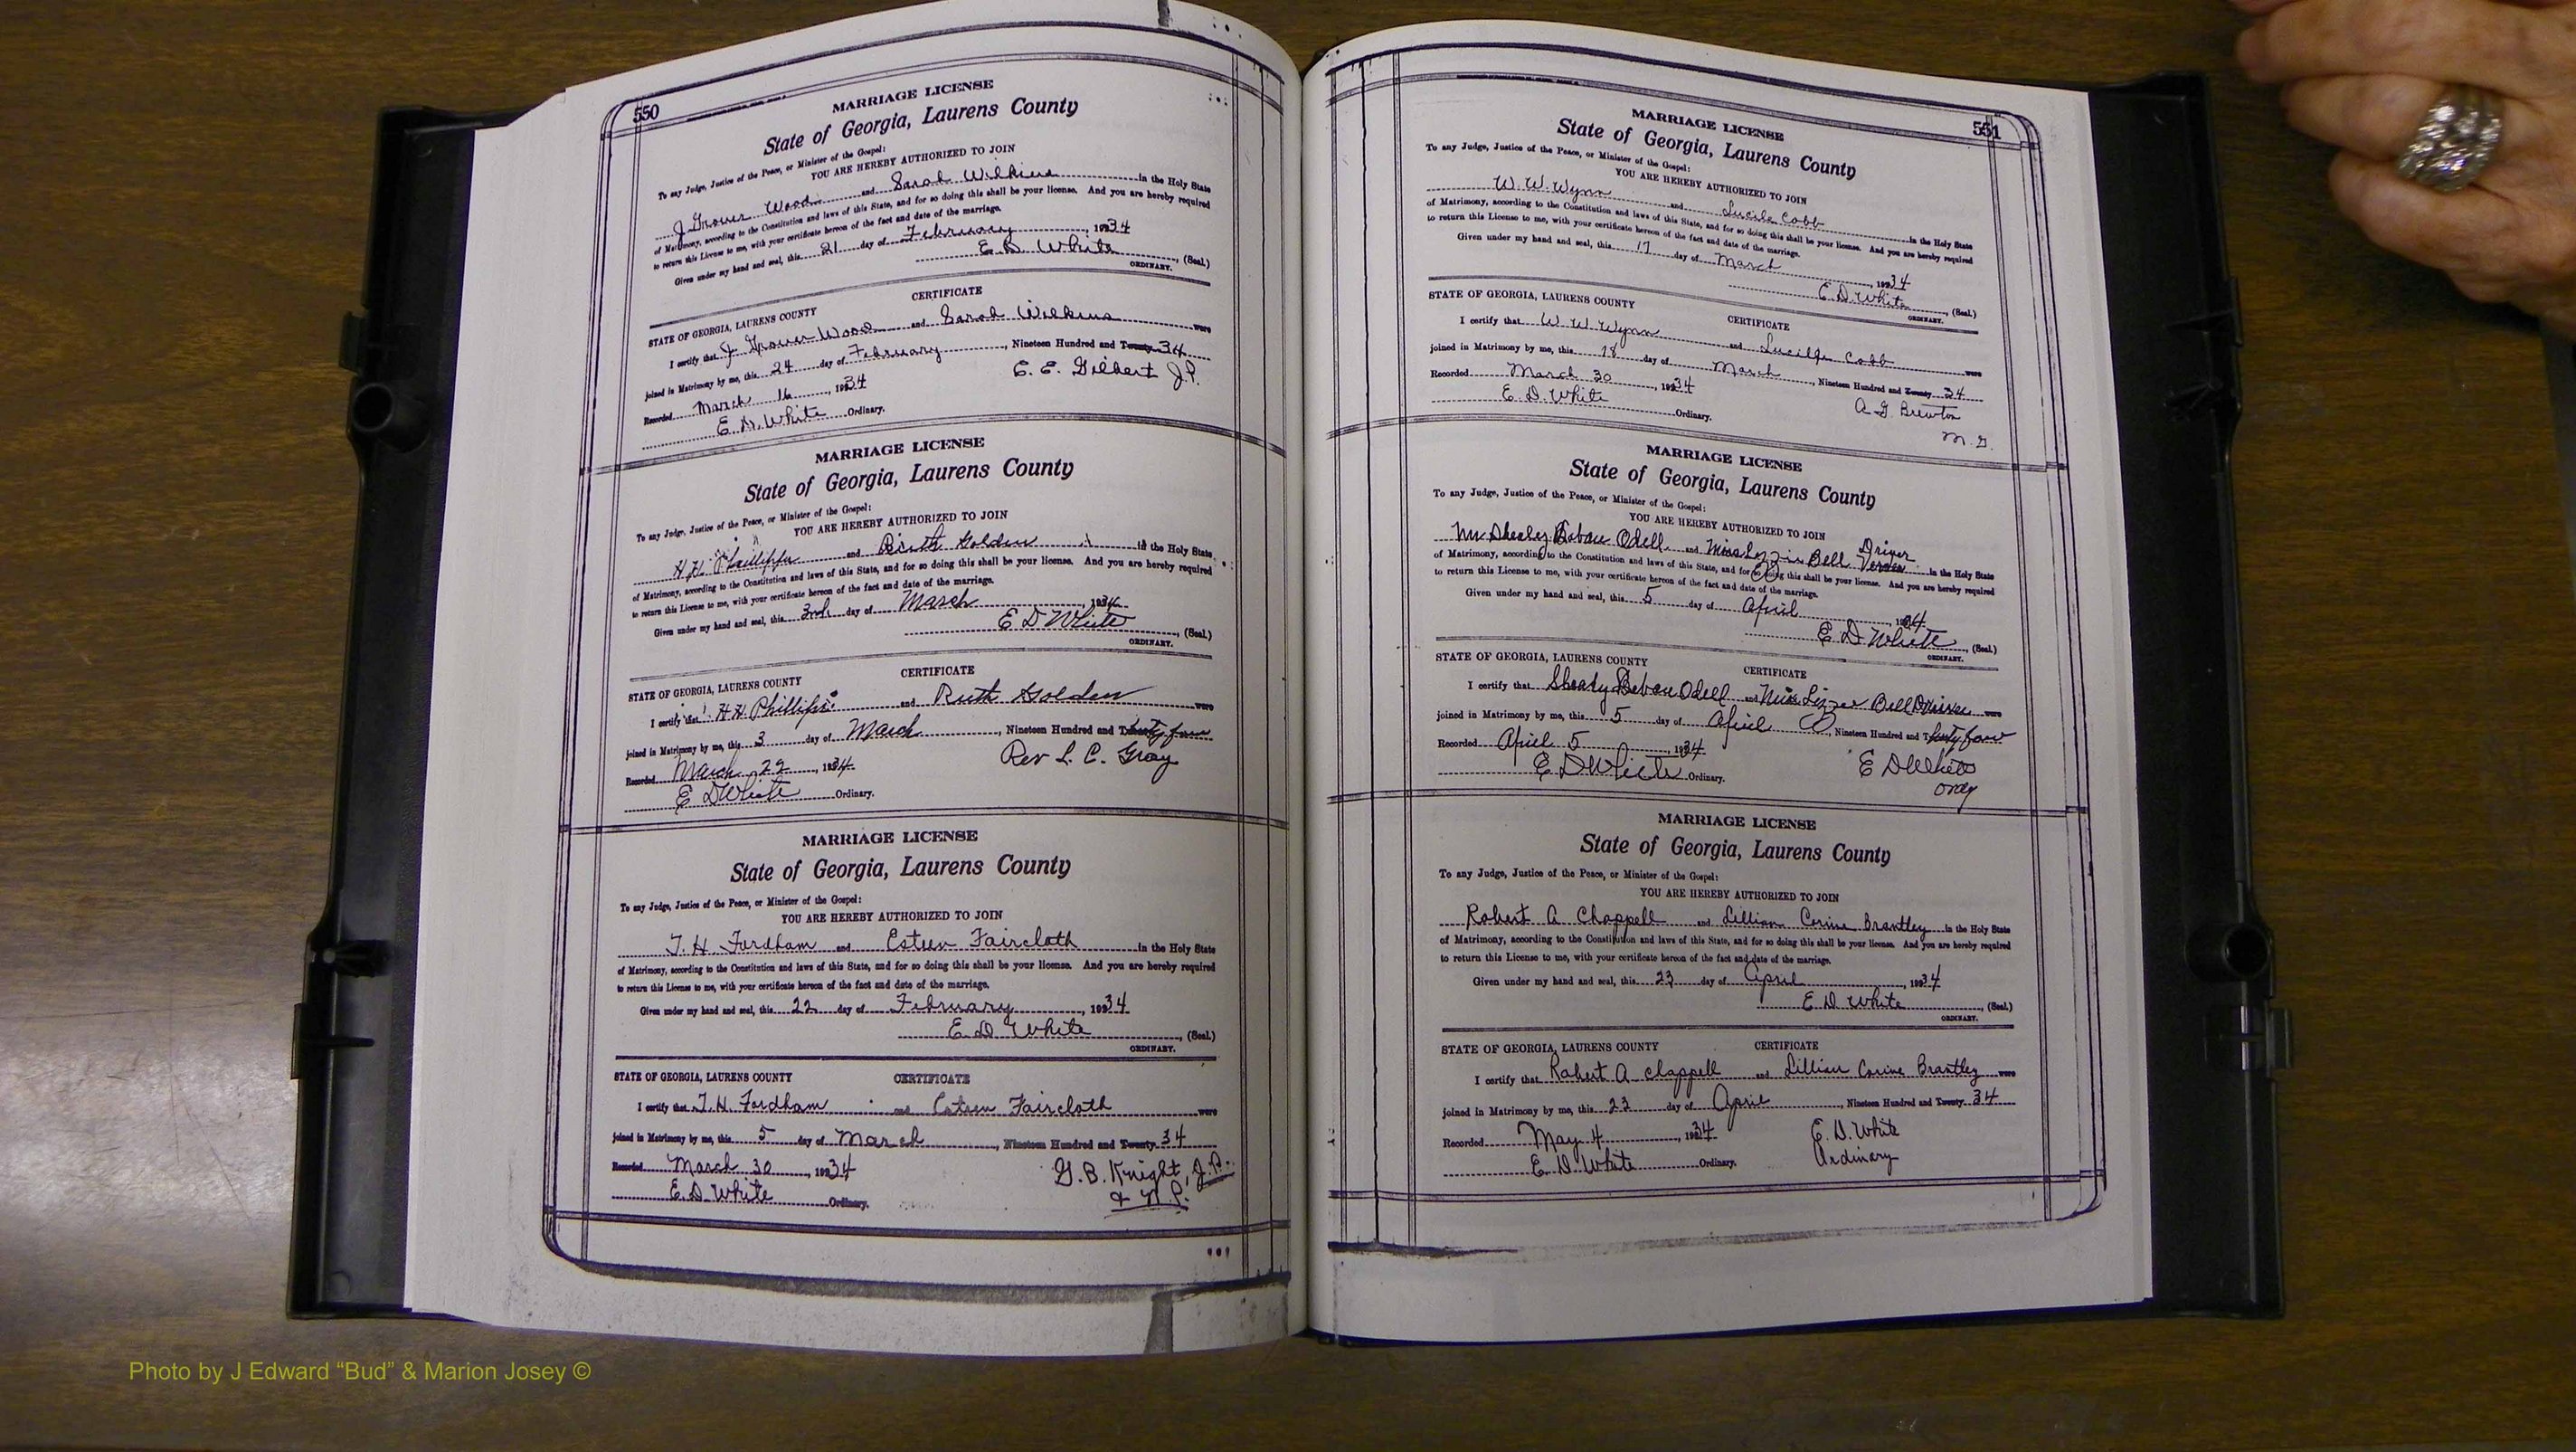 550
MARRIAGE LICENSE
State of Georgia, Laurens County
To any Judge, Justice of the Peace, or Minister of the Gospel:
YOU ARE HEREBY AUTHORIZED TO JOIN
J Grover Wood and Sarah Wilkins in the Holy State
of Matrimony, according to the Constitution and laws of this State, and for so doing this shall be your license. And you are hereby required
to return this License to me, with your certificate hereon of the fact and date of the marriage.
Given under my hand and seal, this 21 day of February, 1934
E. D. White, (Seal.)
ORDINARY.
CERTIFICATE
STATE OF GEORGIA, LAURENS COUNTY
I certify that J Grover Wood and Sarah Wilkins were
joined in Matrimony by me, this 24 day of February, Nineteen Hundred and Twenty 34
Recorded March 16, 1934 E. E. Gilbert J.P.
E. D. White Ordinary.
MARRIAGE LICENSE
State of Georgia, Laurens County
To any Judge, Justice of the Peace, or Minister of the Gospel:
YOU ARE HEREBY AUTHORIZED TO JOIN
H. H. Phillips and Ruth Golden in the Holy State
of Matrimony, according to the Constitution and laws of this State, and for so doing this shall be your license. And you are hereby required
to return this License to me, with your certificate hereon of the fact and date of the marriage.
Given under my hand and seal, this 3rd day of March, 1934
E D White, (Seal.)
ORDINARY.
CERTIFICATE
STATE OF GEORGIA, LAURENS COUNTY
I certify that H H Phillips and Ruth Golden were
joined in Matrimony by me, this 3 day of March, Nineteen Hundred and Thirty four
Recorded March 22, 1934 Rev L. C. Gray
E D White Ordinary.
MARRIAGE LICENSE
State of Georgia, Laurens County
To any Judge, Justice of the Peace, or Minister of the Gospel:
YOU ARE HEREBY AUTHORIZED TO JOIN
T. H. Fordham and Esteen Faircloth in the Holy State
of Matrimony, according to the Constitution and laws of this State, and for so doing this shall be your license. And you are hereby required
to return this License to me, with your certificate hereon of the fact and date of the marriage.
Given under my hand and seal, this 22 day of February, 1934
E. D. White, (Seal.)
ORDINARY.
STATE OF GEORGIA, LAURENS COUNTY CERTIFICATE
I certify that T. H. Fordham and Esteen Faircloth were
joined in Matrimony by me, this 5 day of March, Nineteen Hundred and Twenty 34
Recorded March 30, 1934 G. B. Knight, J.P.
E. D. White Ordinary. & N.P.
551
MARRIAGE LICENSE
State of Georgia, Laurens County
To any Judge, Justice of the Peace, or Minister of the Gospel:
YOU ARE HEREBY AUTHORIZED TO JOIN
W. W. Wynn and Lucile Cobb in the Holy State
of Matrimony, according to the Constitution and laws of this State, and for so doing this shall be your license. And you are hereby required
to return this License to me, with your certificate hereon of the fact and date of the marriage.
Given under my hand and seal, this 17 day of March, 1934
E. D. White, (Seal.)
ORDINARY.
STATE OF GEORGIA, LAURENS COUNTY CERTIFICATE
I certify that W. W. Wynn and Lucille Cobb were
joined in Matrimony by me, this 18 day of March, Nineteen Hundred and Twenty 34
Recorded March 30, 1934 A. G. Brewton
E. D. White Ordinary. M. G.
MARRIAGE LICENSE
State of Georgia, Laurens County
To any Judge, Justice of the Peace, or Minister of the Gospel:
YOU ARE HEREBY AUTHORIZED TO JOIN
Driver
Mr Odell and Miss Bell in the Holy State
of Matrimony, according to the Constitution and laws of this State, and for so doing this shall be your license. And you are hereby required
to return this License to me, with your certificate hereon of the fact and date of the marriage.
Given under my hand and seal, this 5 day of April, 1934
E. D. White, (Seal.)
ORDINARY.
STATE OF GEORGIA, LAURENS COUNTY CERTIFICATE
I certify that Odell and Miss Bell Driver were
joined in Matrimony by me, this 5 day of April, Nineteen Hundred and Thirty four
Recorded April 5, 1934 E D White
E D White Ordinary. Ordy
MARRIAGE LICENSE
State of Georgia, Laurens County
To any Judge, Justice of the Peace, or Minister of the Gospel:
YOU ARE HEREBY AUTHORIZED TO JOIN
Robert A Chappell and Lillian Corine Brantley in the Holy State
of Matrimony, according to the Constitution and laws of this State, and for so doing this shall be your license. And you are hereby required
to return this License to me, with your certificate hereon of the fact and date of the marriage.
Given under my hand and seal, this 23 day of April, 1934
E. D. White, (Seal.)
ORDINARY.
STATE OF GEORGIA, LAURENS COUNTY CERTIFICATE
I certify that Robert A Chappell and Lillian Corine Brantley were
joined in Matrimony by me, this 23 day of April, Nineteen Hundred and Twenty 34
Recorded May 4, 1934 E. D. White
E. D. White Ordinary. Ordinary
Photo by J Edward “Bud” & Marion Josey ©